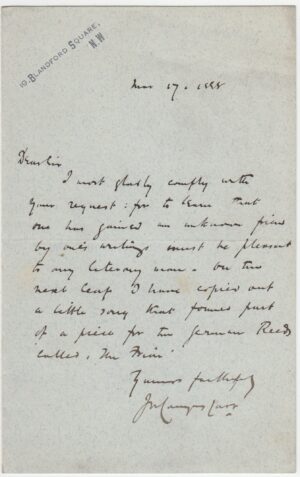 19, BLANDFORD SQUARE,
N.W.
Mar 17. 1888
Dear Sir
I most gladly comply with
your request: for to learn that
one has gained an unknown friend
by one's writings must be pleasant
to any literary man. On the
next leaf I have copied out
a little song that formed part
of a piece for the German Reeds
called, The Friar
Yours faithfully
J. Comyns Carr